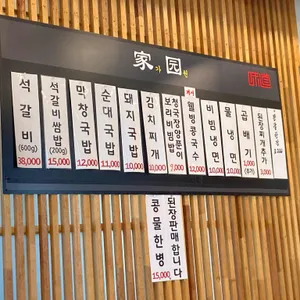 家가园원
석갈비 (600g) 38,000
석갈비쌈밥 (200g) 15,000
맛창국밥 12,000
순대국밥 11,000
돼지국밥 10,000
김치찌개 10,000
청국장양푼이
보리비빔밥
웰빙콩국수 12,000
비빔냉면 10,000
물냉면 10,000
곱배기 1,000
된장찌개추가
된장판매합니다
콩물한병 15,000